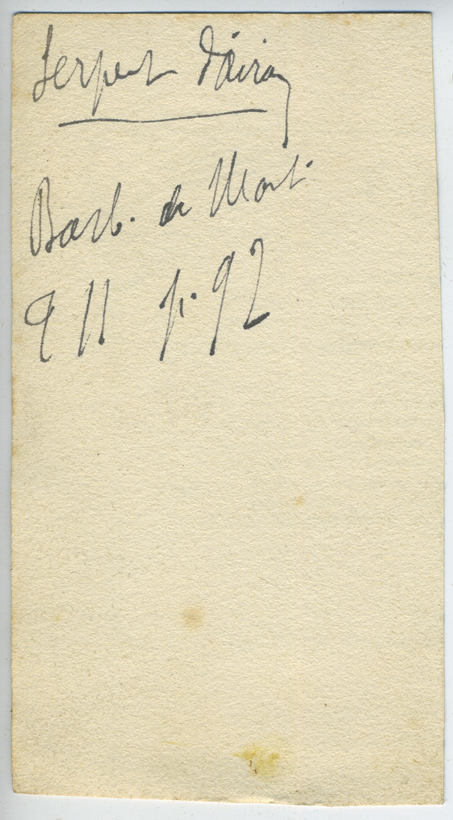 Serpent d'airain
Barb. de Mont.
q 11 p. 92